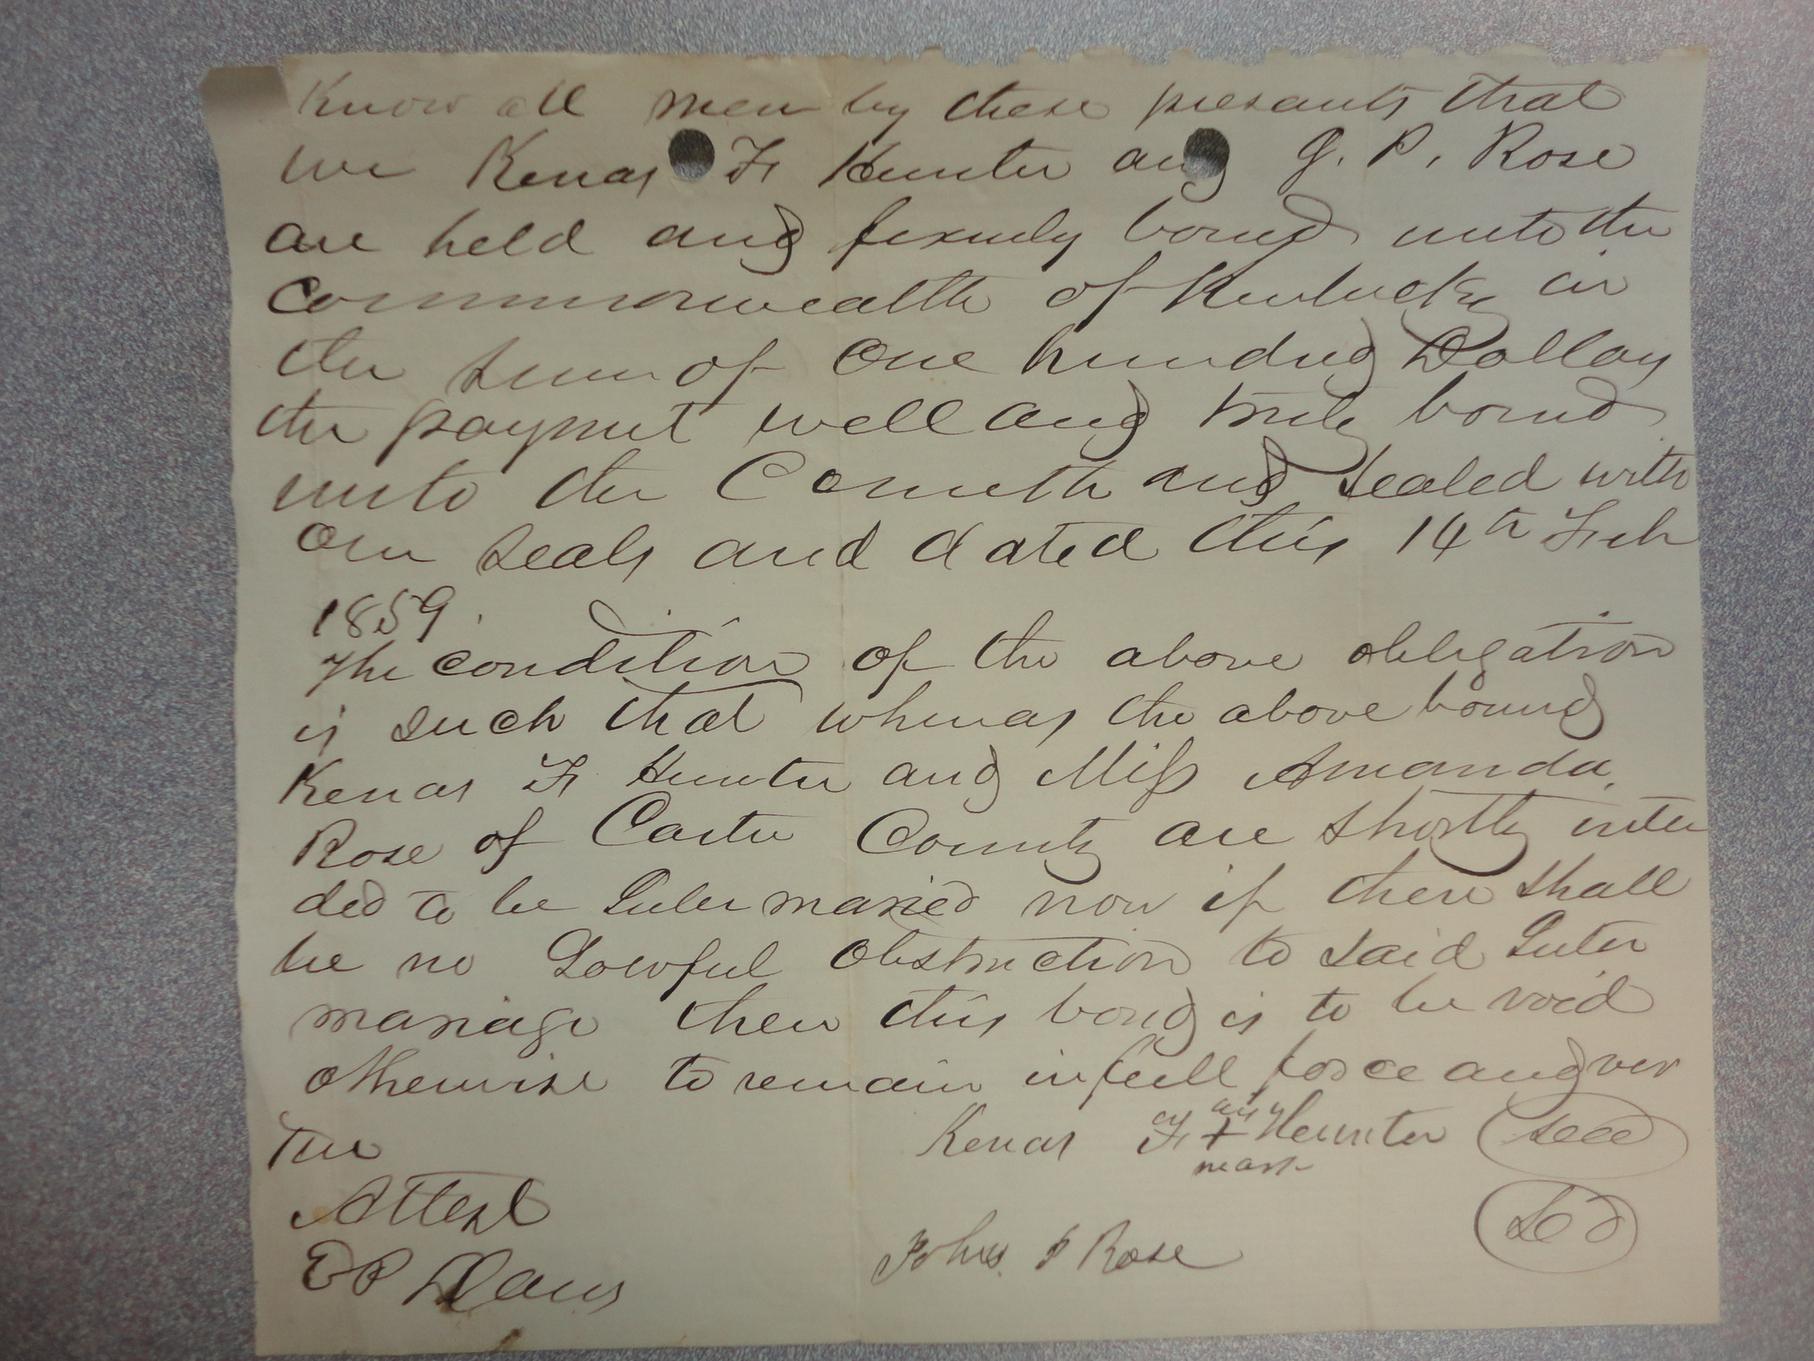 Know all men by these presants that
we Kenas F. Hunter and J. P. Rose
are held and firmly bound unto the
Commonwealth of Kentucky in
the sum of One hundred Dollars
the paymnt well and truly bound
unto the Comnth and sealed with
Our seals and dated this 14th Feb
1859.
The condition of the above obligation
is such that whereas the above bound
Kenas F. Hunter and Miss Amanda
Rose of Carter County are shortly inten
ded to be Inter maried now if there shall
be no Lowful Obstruction to said Inter
mariage then this bond is to be void
otherwise to remain in full force and ver
tue
Kenas F. + Hunter
mark
Attest
John P Rose
E P Davis